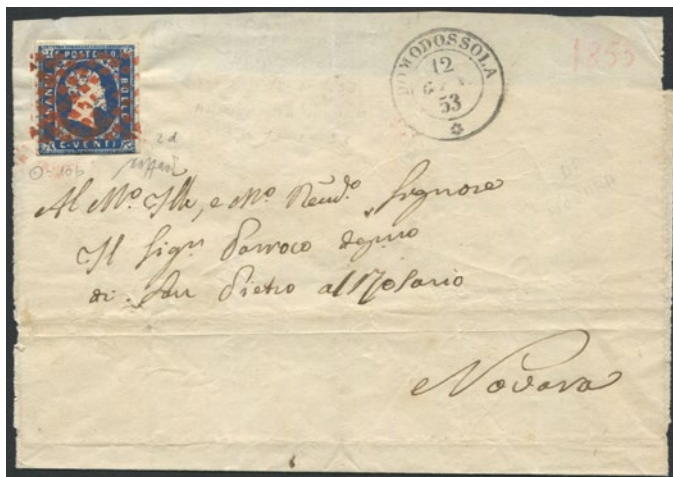 POSTE
BOLLO
C. VENTI
DOMODOSSOLA
12
53
1853
2d
Al Mo. Ill., e Mo. Rend.o Signore
Il Sigr. Parroco degno
di San Pietro al Rosario
Novara